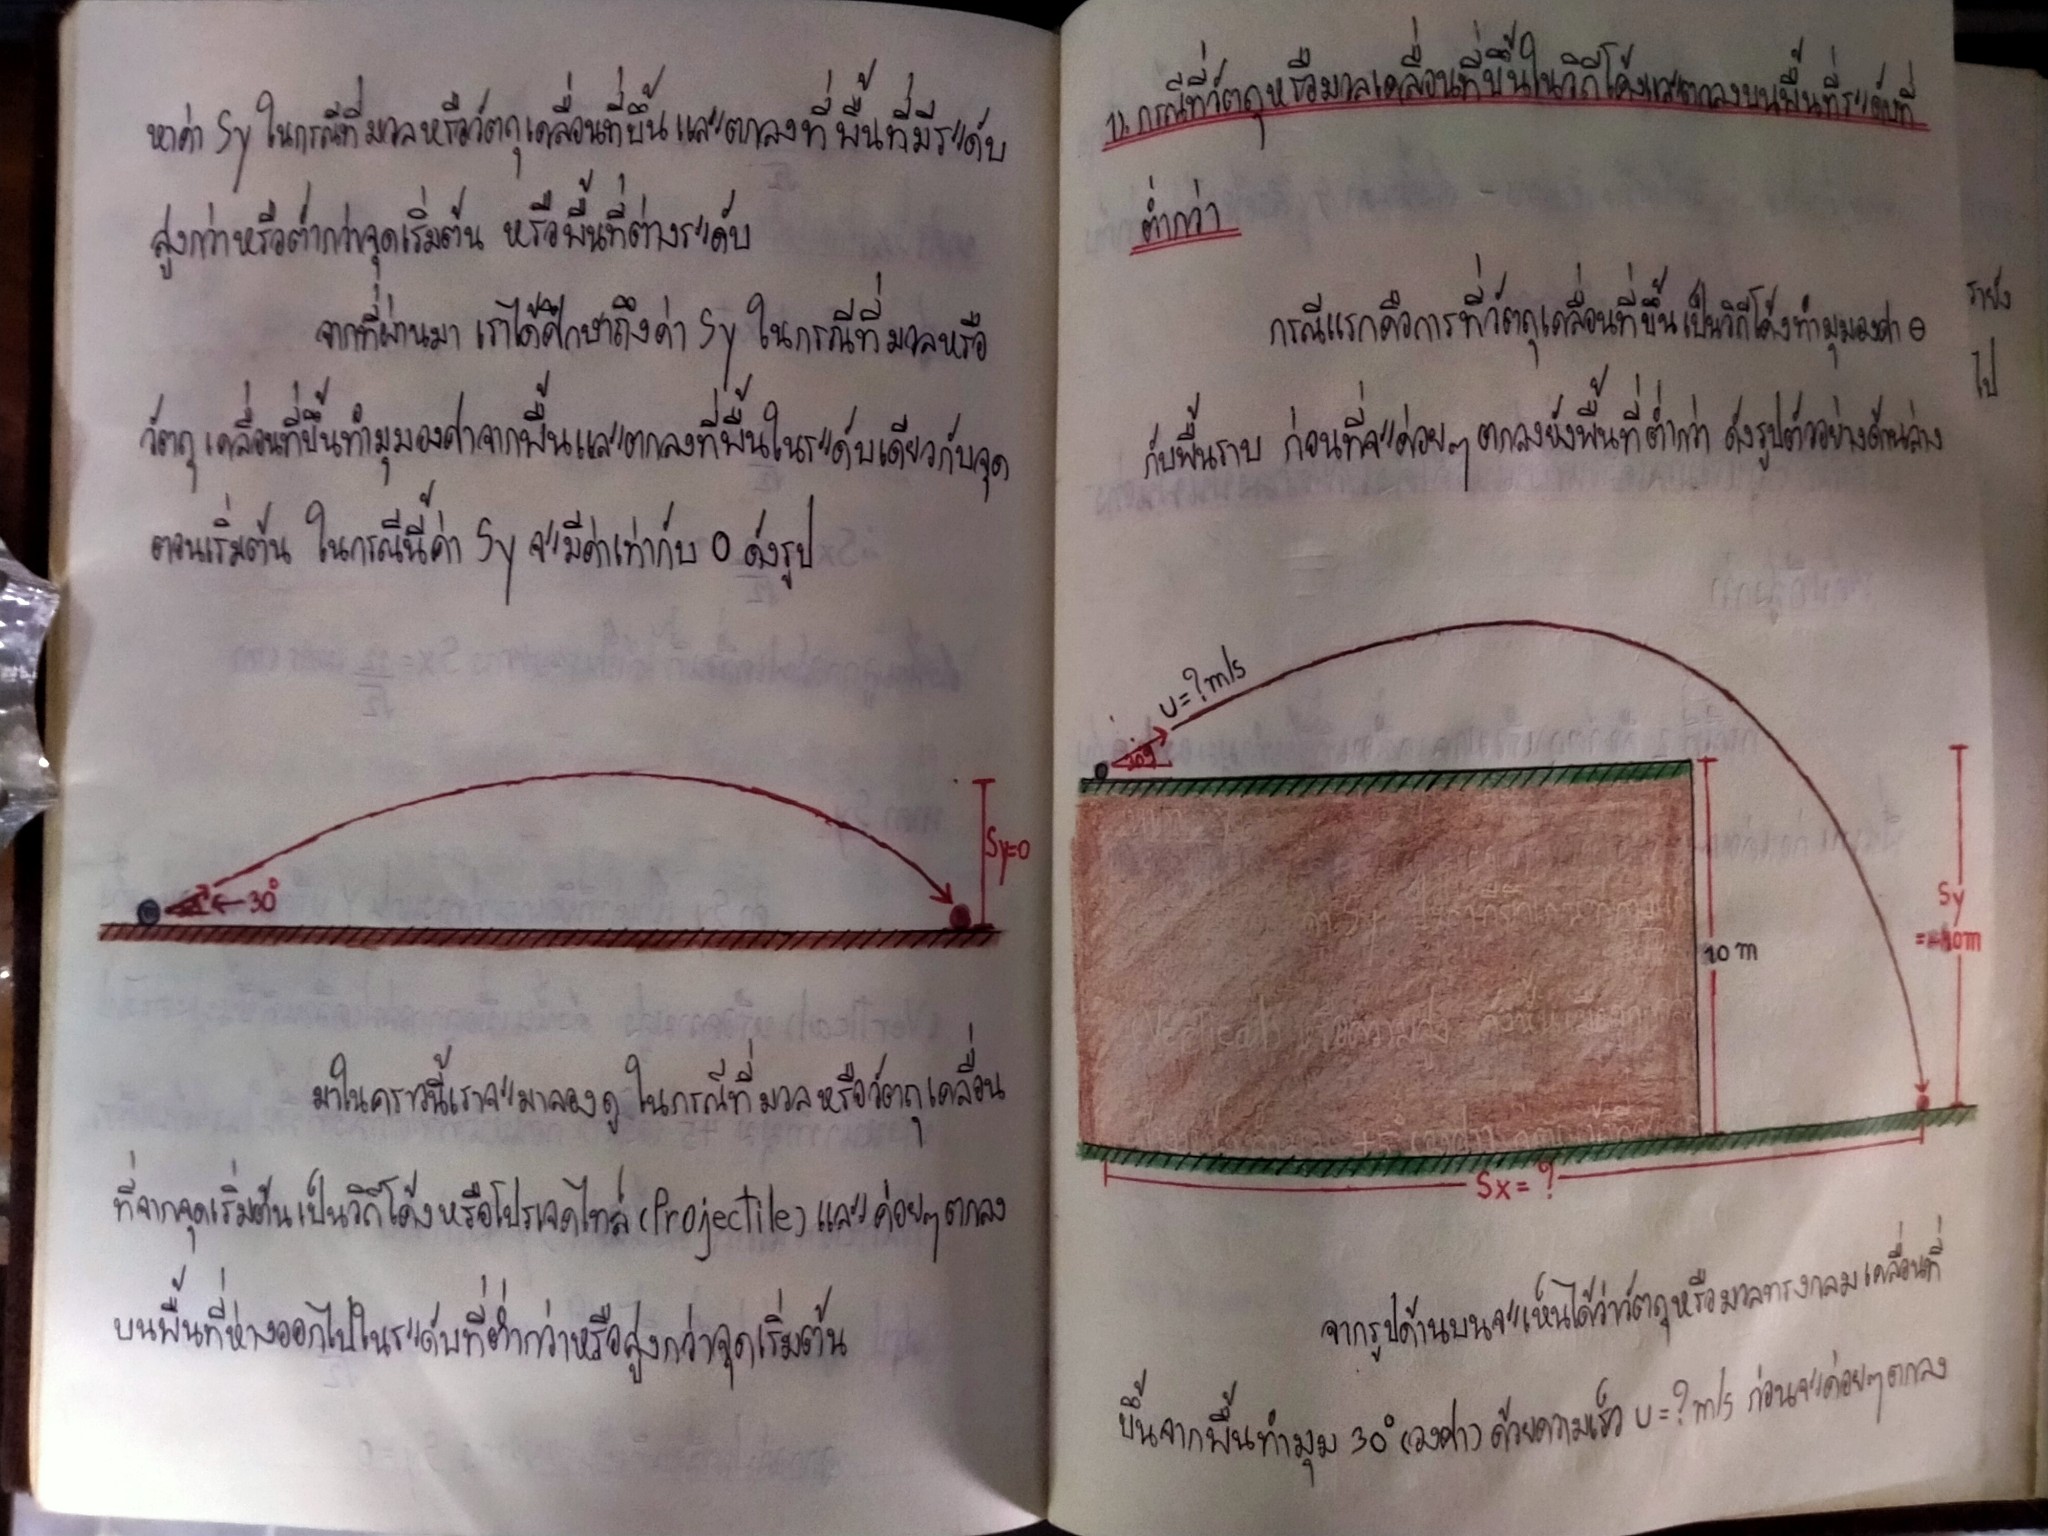 หาค่า Sy ในกรณีที่มวลหรือวัตถุเคลื่อนที่ขึ้นและตกลงที่พื้นที่มีระดับ
สูงกว่าหรือต่ำกว่าจุดเริ่มต้น หรือพื้นที่ต่างระดับ
จากที่ผ่านมา เราได้ศึกษาถึงค่า Sy ในกรณีที่มวลหรือ
วัตถุเคลื่อนที่ขึ้นทำมุมองศาจากพื้นและตกลงที่พื้นในระดับเดียวกับจุด
ตอนเริ่มต้น ในกรณีนี้ค่า Sy จะมีค่าเท่ากับ 0 ดังรูป
Sy=0
←30°
มาในคราวนี้เราจะมาลองดู ในกรณีที่มวลหรือวัตถุเคลื่อน
ที่จากจุดเริ่มต้นเป็นวิถีโค้งหรือโปรเจคไทล์ (Projectile) และค่อยๆตกลง
บนพื้นที่ห่างออกไปในระดับที่ต่ำกว่าหรือสูงกว่าจุดเริ่มต้น
1). กรณีที่วัตถุหรือมวลเคลื่อนที่ขึ้นในวิถีโค้งและตกลงบนพื้นที่ระดับที่
ต่ำกว่า
กรณีแรกคือการที่วัตถุเคลื่อนที่ขึ้นเป็นวิถีโค้งทำมุมองศา θ
กับพื้นราบ ก่อนที่จะค่อยๆตกลงยังพื้นที่ต่ำกว่า ดังรูปตัวอย่างด้านล่าง
u=?m/s
30°
10 m
Sy
=-10m
Sx = ?
จากรูปด้านบนจะเห็นได้ว่าวัตถุหรือมวลทรงกลมเคลื่อนที่
ขึ้นจากพื้นทำมุม 30° (องศา) ด้วยความเร็ว u=?m/s ก่อนจะค่อยๆตกลง
ไป